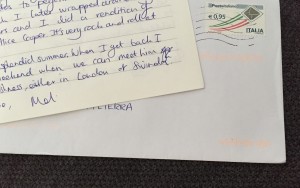 to people
I later wrapped around
and I did a rendition of
Alice Cooper. It's very rock and roll at
splendid summer. When I get back I
weekend when we can meet him
illness, either in London or Swindon
Mel
Posteitaliane
€ 0,95
ITALIA
TERRA